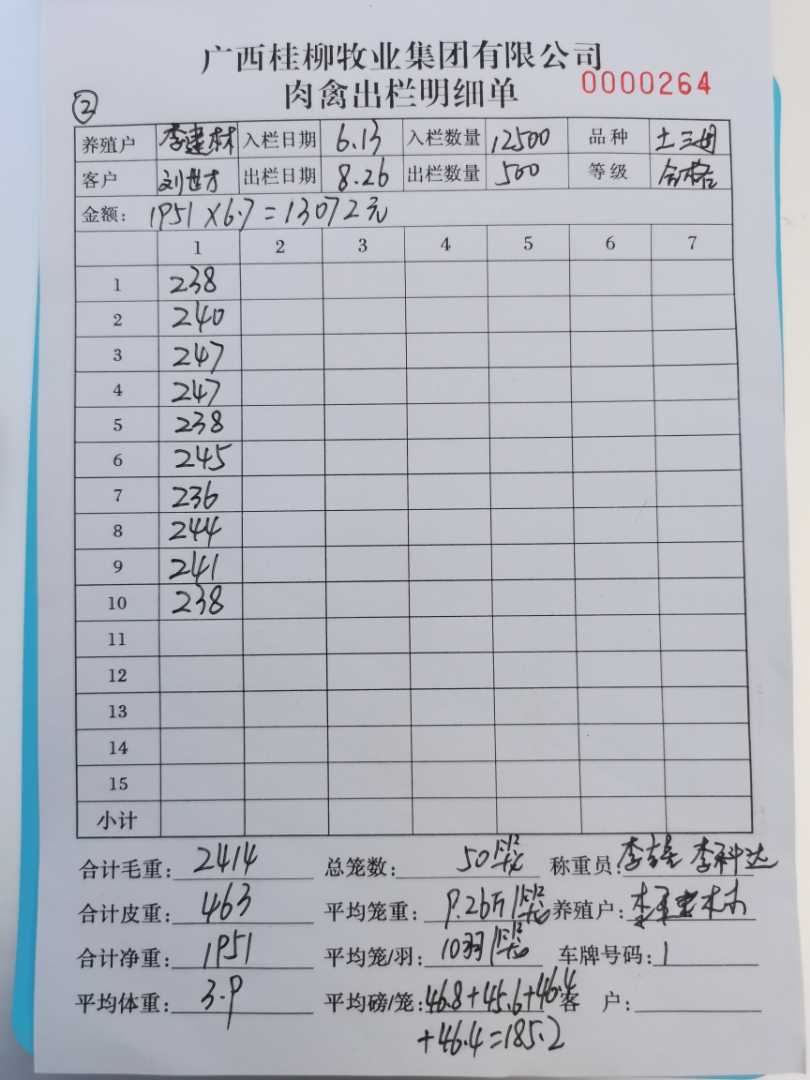 广西桂柳牧业集团有限公司
肉禽出栏明细单 0000264
②
养殖户 李建林 入栏日期 6.13 入栏数量 12500 品种 土三
客户 刘世才 出栏日期 8.26 出栏数量 500 等级 合格
金额: 1951×6.7=13072元
1 2 3 4 5 6 7
1 238
2 240
3 247
4 247
5 238
6 245
7 236
8 244
9 241
10 238
11
12
13
14
15
小计
合计毛重: 2414 总笼数: 50 称重员: 李 李科达
合计皮重: 463 平均笼重: 9.26斤/ 养殖户: 李建林
合计净重: 1951 平均笼/羽: 10羽/ 车牌号码: 1
平均体重: 3.9 平均磅/笼: 46.8+45.6+46.4 客 户:
+46.4=185.2